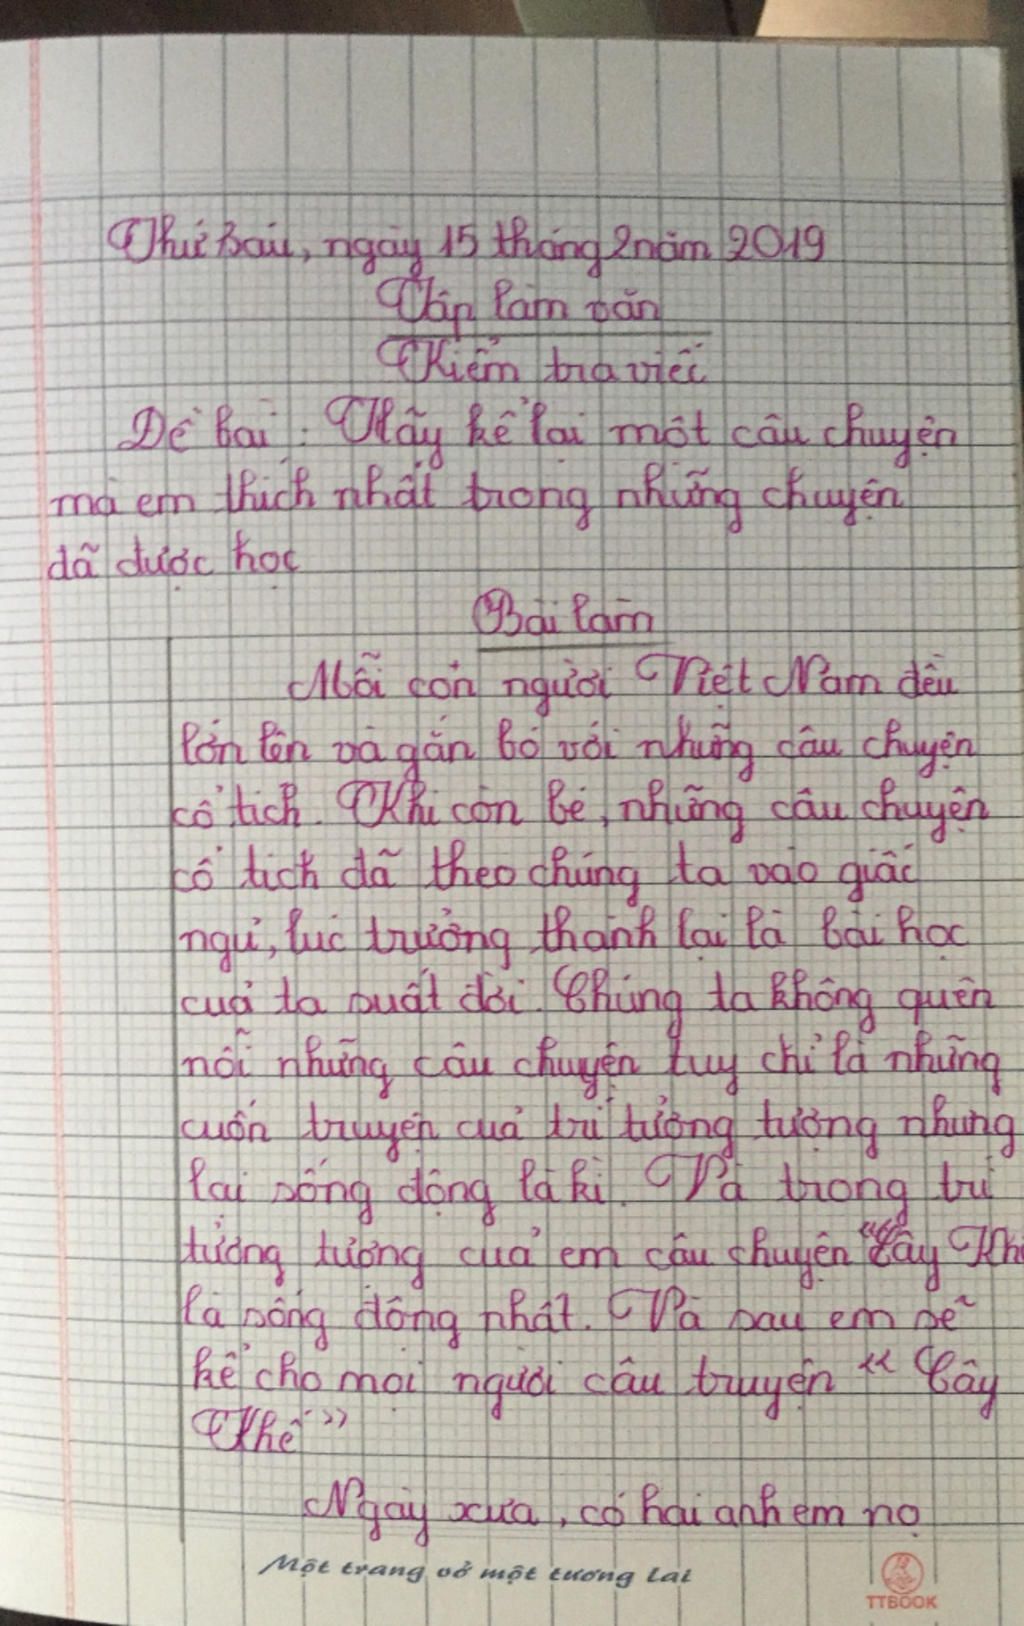 Thứ sáu, ngày 15 tháng 2 năm 2019
Tập làm văn
Kiểm tra viết
Đề bài: Hãy kể lại một câu chuyện
mà em thích nhất trong những chuyện
đã được học
Bài làm
Mỗi con người Việt Nam đều
lớn lên và gắn bó với những câu chuyện
cổ tích. Khi còn bé, những câu chuyện
cổ tích đã theo chúng ta vào giấc
ngủ, lúc trưởng thành lại là bài học
của ta suất đời. Chúng ta không quên
nỗi những câu chuyện tuy chỉ là những
cuốn truyện của trí tưởng tượng nhưng
lại sống động lạ kì. Và trong trí
tưởng tượng của em câu chuyện "Cây Khế
là sống động nhất. Và sau em sẽ
kể cho mọi người câu truyện "Cây
Khế"
Ngày xưa, có hai anh em nọ
Một trang vở một tương lai
TTBOOK